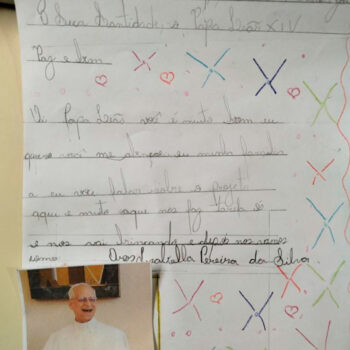 A Sua Santidade, o Papa Leão XIV
Paz e bem
Vi Papa Leão você é muito bom eu
quero você me abençoe eu minha família
a eu vou falar sobre o projeto
aqui e muito aque nos faz tarefa é
e nos vai brincando e depois nos vamos
Pereira da Silva.